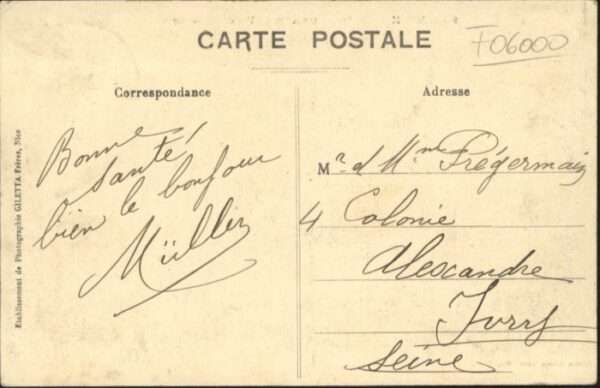 CARTE POSTALE
F06000
Correspondance
Adresse
Bonne
santé,
bien le bonjour
Müller
Mr. & Mme Prégermain
4 Colonie
Alexandre
Ivry
Seine
Etablissement de Photographie GILETTA Frères, Nice